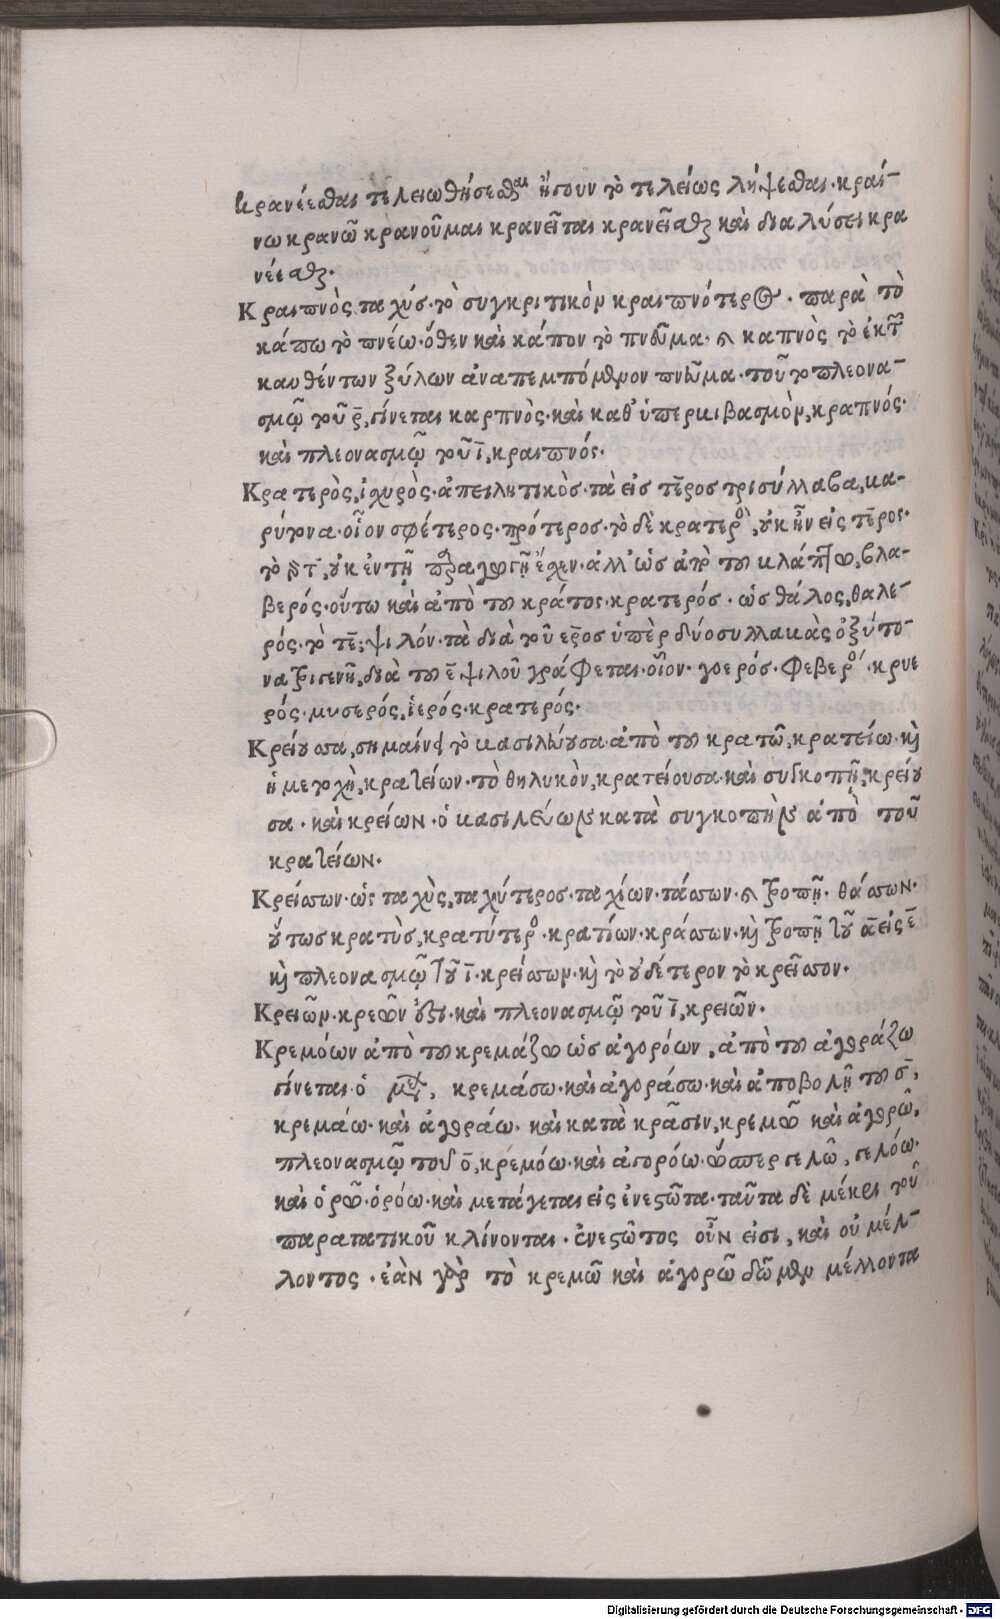 κρανέεσθαι τελειωθήσεσθαι ἤγουν τὸ τελείως λήψεσθαι· κραί-
νω κρανῶ κρανοῦμαι κρανεῖται κρανεῖσθαι καὶ διαλύσει κρα
νέεσθαι·
Κραιπνὸς ταχύς· τὸ συγκριτικὸν κραιπνότερος· παρὰ τὸ
κάπω τὸ πνέω· ὅθεν καὶ κάπον τὸ πνεῦμα· καπνὸς τὸ ἐκ τῶν
καυθέντων ξύλων ἀναπεμπόμενον πνεῦμα· τοῦτο πλεονα-
σμῷ τοῦ ρ̄, γίνεται καρπνὸς· καὶ καθ' ὑπερβιβασμὸν, κραπνός·
καὶ πλεονασμῷ τοῦ ῑ, κραιπνός·
Κρατερὸς, ἰσχυρὸς· ἀπειλητικὸς· τὰ εἰς τερος τρισύλλαβα, βα-
ρύτονα· οἷον σφέτερος· πρότερος· τὸ δὲ κρατερὸς, οὐκ ἦν εἰς τερος·
τὸ γὰρ τ̄, οὐκ ἐν τῇ παραγωγῇ ἔχεν· ἀλλ' ὡς ἀπὸ τοῦ βλάπτω, βλα-
βερός· οὕτω καὶ ἀπὸ τοῦ κράτος· κρατερός· ὡς θάλος, θαλε-
ρός· τὸ τε, ψιλόν· τὰ διὰ τοῦ ερος ὑπὲρ δύο συλλαβὰς ὀξύτο-
να τριγενῆ, διὰ τοῦ ε̄ ψιλοῦ γράφεται· οἷον· γοερός· φοβερός· κρυε
ρός· μυσερός, ἱερός· κρατερός·
Κρείουσα, σημαίνει τὸ βασιλεύουσα· ἀπὸ τοῦ κρατῶ, κρατείω· καὶ
ἡ μετοχὴ, κρατείων· τὸ θηλυκὸν, κρατείουσα· καὶ συγκοπῇ, κρείου
σα· καὶ κρείων· ὁ βασιλεύων κατὰ συγκοπὴν ἀπὸ τοῦ
κρατείων·
Κρείσσων· ὡς ταχὺς, ταχύτερος· ταχίων· τάσσων· τροπῇ· θάσσων·
οὕτως κρατὺς, κρατύτερος· κρατίων· κράσσων· καὶ τροπῇ τοῦ ᾱ εἰς ε̄
καὶ πλεονασμῷ τοῦ ῑ· κρείσσων· καὶ τὸ οὐδέτερον τὸ κρεῖσσον·
Κρειῶν· κρεῶν οὖσι· καὶ πλεονασμῷ τοῦ ῑ, κρειῶν·
Κρεμόων ἀπὸ τοῦ κρεμάζω ὡς ἀγορόων, ἀπὸ τοῦ ἀγοράζω
γίνεται· ὁ μέλλων, κρεμάσω· καὶ ἀγοράσω· καὶ ἀποβολῇ τοῦ σ̄,
κρεμάω· καὶ ἀγοράω· καὶ κατὰ κρᾶσιν, κρεμῶ καὶ ἀγορῶ,
πλεονασμῷ τοῦ ο̄, κρεμόω· καὶ ἀγορόω· ὥσπερ γελῶ, γελόω·
καὶ ὁρῶ· ὁρόω· καὶ μετάγεται εἰς ἐνεστῶτα· ταῦτα δὲ μέχρι τοῦ
παρατατικοῦ κλίνονται· ἐνεστῶτος οὖν εἰσι, καὶ οὐ μέλ-
λοντος· ἐὰν γὰρ τὸ κρεμῶ καὶ ἀγορῶ δῶμεν μέλλοντα
Digitalisierung gefördert durch die Deutsche Forschungsgemeinschaft · DFG